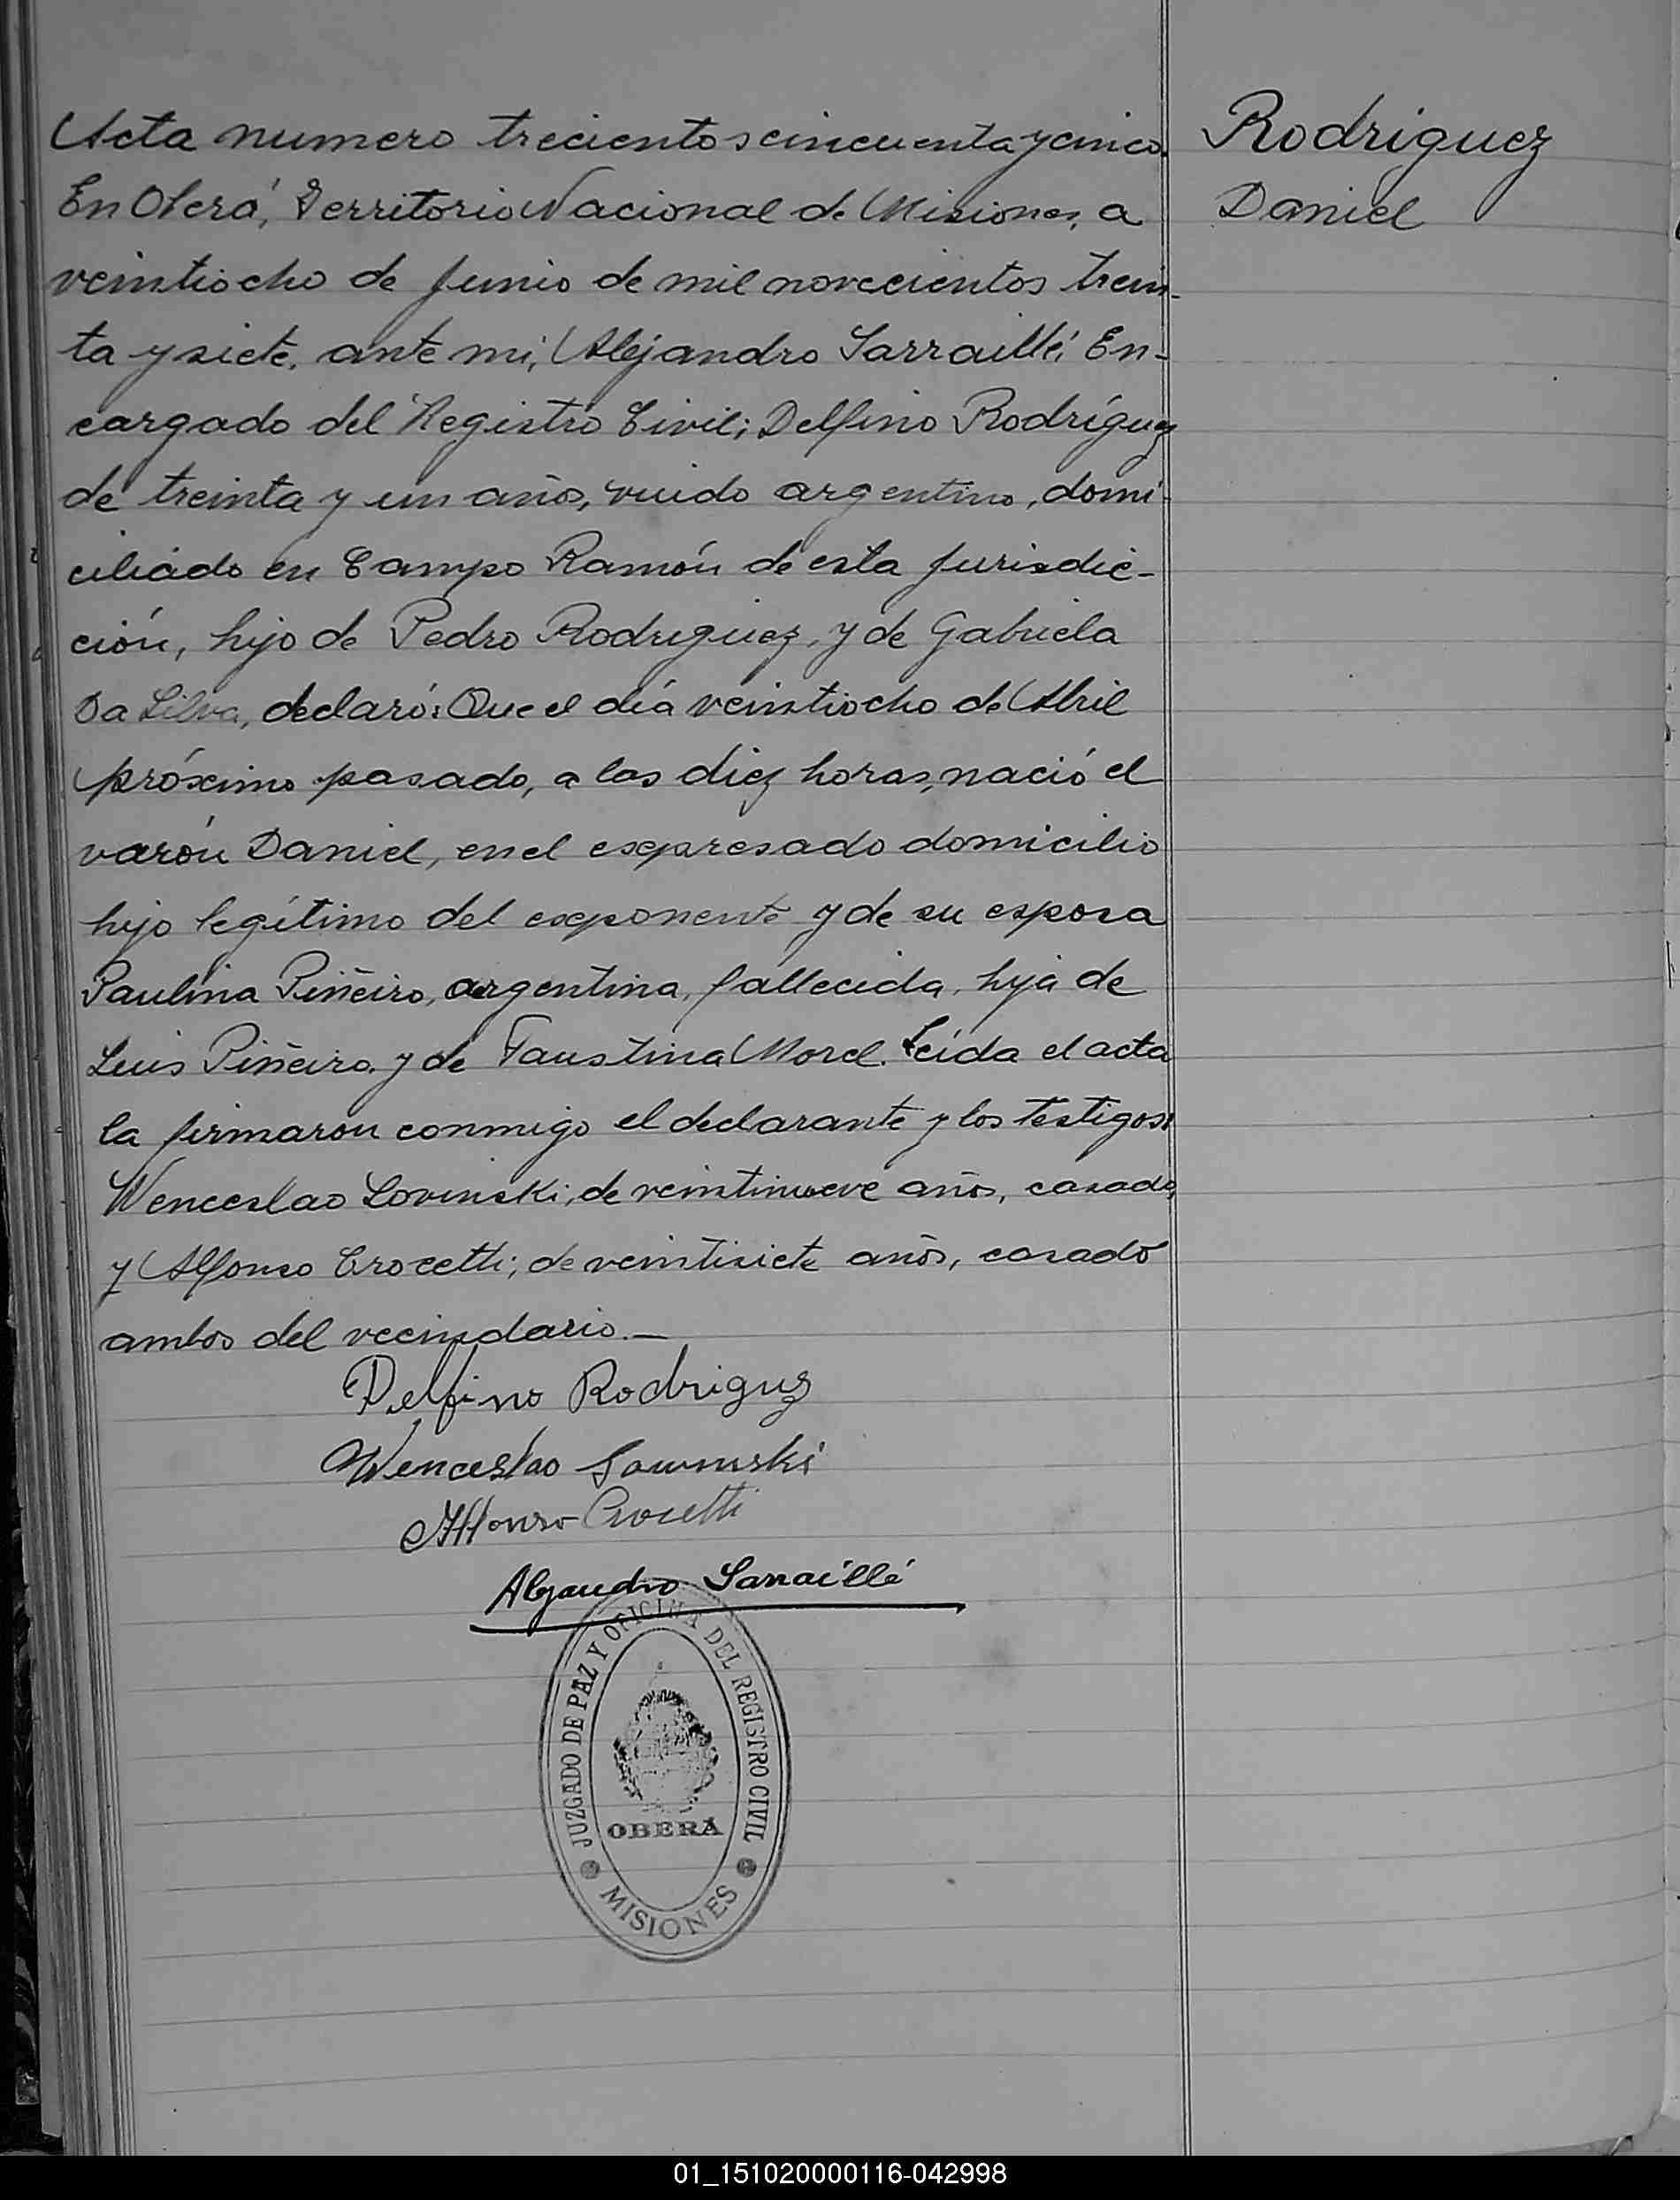 Acta numero treciento s cincuenta y cinco.
En Oberá, Territorio Nacional de Misiones, a
veintiocho de Junio de mil novecientos trein-
ta y siete, ante mi, Alejandro Sarraillé, En-
cargado del Registro Civil; Delfino Rodríguez
de treinta y un años, viudo argentino, domi-
ciliado en Campo Ramón de esta Jurisdic-
ción, hijo de Pedro Rodriguez, y de Gabriela
Da Silva, declaró: Que el día veintiocho de Abril
próximo pasado, a las diez horas, nació el
varón Daniel, en el expresado domicilio
hijo legítimo del exponente y de su esposa
Paulina Piñeiro, argentina, fallecida, hija de
Luis Piñeiro. y de Faustina Morel. Leída el acta
la firmaron conmigo el declarante y los testigos:
Wenceslao Lovinski, de veintinueve años, casado,
y Alfonso Crocetti; de veintisiete años, casado
ambos del vecindario.—
Delfino Rodriguz
Wenceslao
Alfonso Crocetti
Alejandro Sarraillé
JUZGADO DE PAZ Y OFICINA DEL REGISTRO CIVIL
OBERÁ
MISIONES
Rodriguez
Daniel
01_151020000116-042998